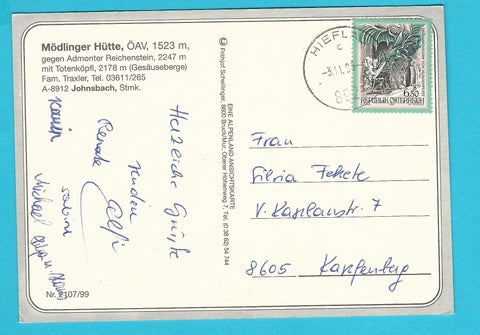 Mödlinger Hütte, ÖAV, 1523 m,
gegen Admonter Reichenstein, 2247 m
mit Totenköpfl, 2178 m (Gesäuseberge)
Fam. Traxler, Tel. 03611/265
A-8912 Johnsbach, Stmk.
Herzliche Grüße
senden
Renate
Karin
Sabine
Michael
Nr. 2107/99
© Frithjof Schellinger, 8600 Bruck/Mur, Oberer Höhenweg 7, Tel. (0 38 62) 54 744
EINE ALPENLAND ANSICHTSKARTE
HIEFLA
c
-3.11.99
89
6.50
REPUBLIK ÖSTERREICH
Frau
Silvia Fekete
V. Kaplanstr. 7
8605 Kapfenberg